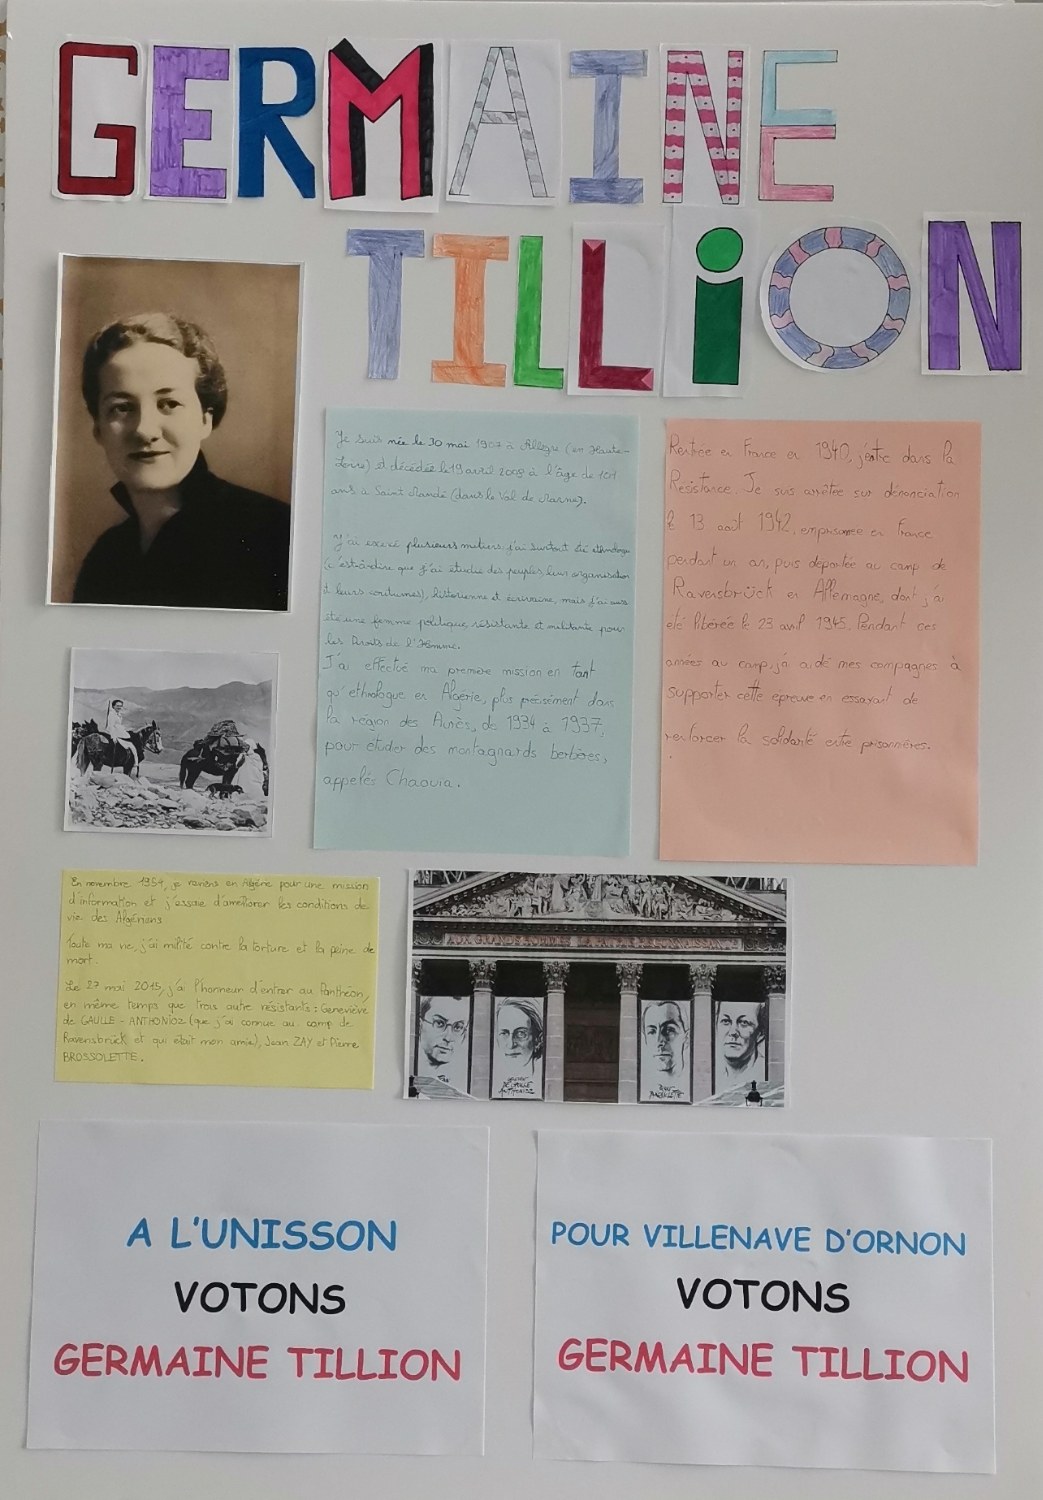 GERMAINE
TILLION
Je suis née le 30 mai 1907 à Allègre (en Haute-
Loire) et décédée le 19 avril 2008 à l'âge de 101
ans à Saint Mandé (dans le Val de Marne).
J'ai exercé plusieurs métiers, j'ai surtout été ethnologue
(c'est-à-dire que j'ai étudié des peuples, leur organisation
et leurs coutumes), historienne et écrivaine, mais j'ai aussi
été une femme politique, résistante et militante pour
les Droits de l'Homme.
J'ai effectué ma première mission en tant
qu'ethnologue en Algérie, plus précisément dans
la région des Aurès, de 1934 à 1937,
pour étudier des montagnards berbères,
appelés Chaouia.
Rentrée en France en 1940, j'entre dans la
Résistance. Je suis arrêtée sur dénonciation
le 13 août 1942, emprisonnée en France
pendant un an, puis déportée au camp de
Ravensbrück en Allemagne, dont j'ai
été libérée le 23 avril 1945. Pendant ces
années au camp, j'ai aidé mes compagnes à
supporter cette épreuve en essayant de
renforcer la solidarité entre prisonnières.
En novembre 1954, je reviens en Algérie pour une mission
d'information et j'essaie d'améliorer les conditions de
vie des Algériens.
Toute ma vie, j'ai milité contre la torture et la peine de
mort.
Le 27 mai 2015, j'ai l'honneur d'entrer au Panthéon,
en même temps que trois autre résistants : Geneviève
de GAULLE - ANTHONIOZ (que j'ai connue au camp de
Ravensbrück et qui était mon amie), Jean ZAY et Pierre
BROSSOLETTE.
AUX GRANDS HOMMES LA PATRIE RECONNAISSANTE
A L'UNISSON
VOTONS
GERMAINE TILLION
POUR VILLENAVE D'ORNON
VOTONS
GERMAINE TILLION